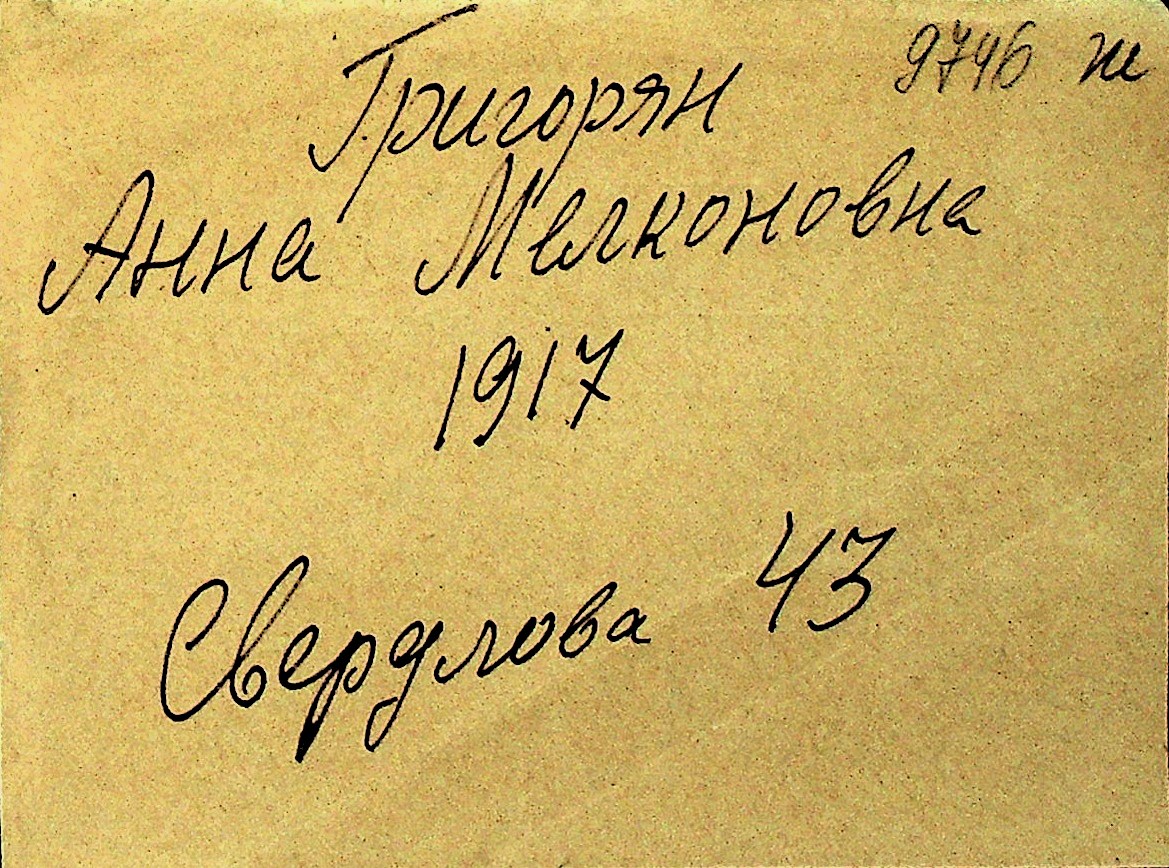 9746 ж
Григорян
Анна Мелконовна
1917
Свердлова 43